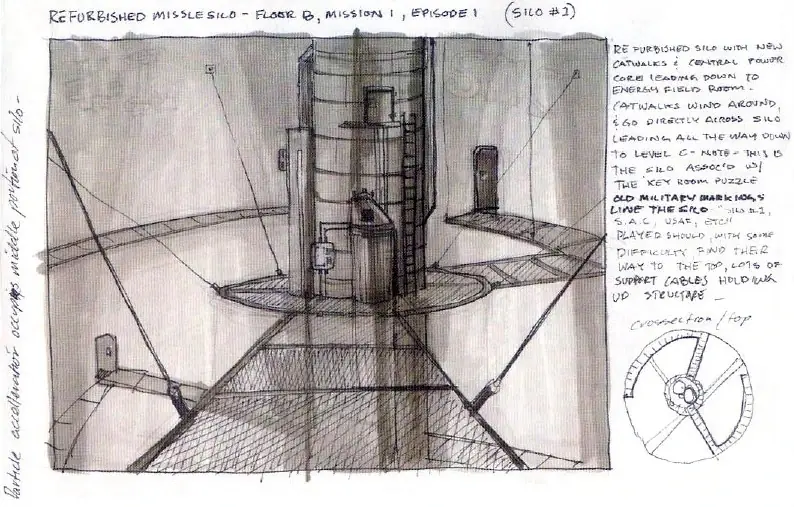 REFURBISHED MISSLE SILO - FLOOR B, MISSION 1, EPISODE 1 (SILO #1)
REFURBISHED SILO WITH NEW
CATWALKS & CENTRAL POWER
CORE LEADING DOWN TO
ENERGY FIELD ROOM.
CATWALKS WIND AROUND,
& GO DIRECTLY ACROSS SILO
LEADING ALL THE WAY DOWN
TO LEVEL C - NOTE - THIS IS
THE SILO ASSOC'D W/
THE KEY ROOM PUZZLE
OLD MILITARY MARKINGS
LINE THE SILO "SILO #1,
S.A.C., USAF, ETC!!
PLAYED SHOULD, WITH SOME
DIFFICULTY FIND THER
WAY TO THE TOP, LOTS OF
SUPPORT CABLES HOLDING
UP STRUCTURE -
crossection / top
Particle accellerator occupies middle portion of silo -